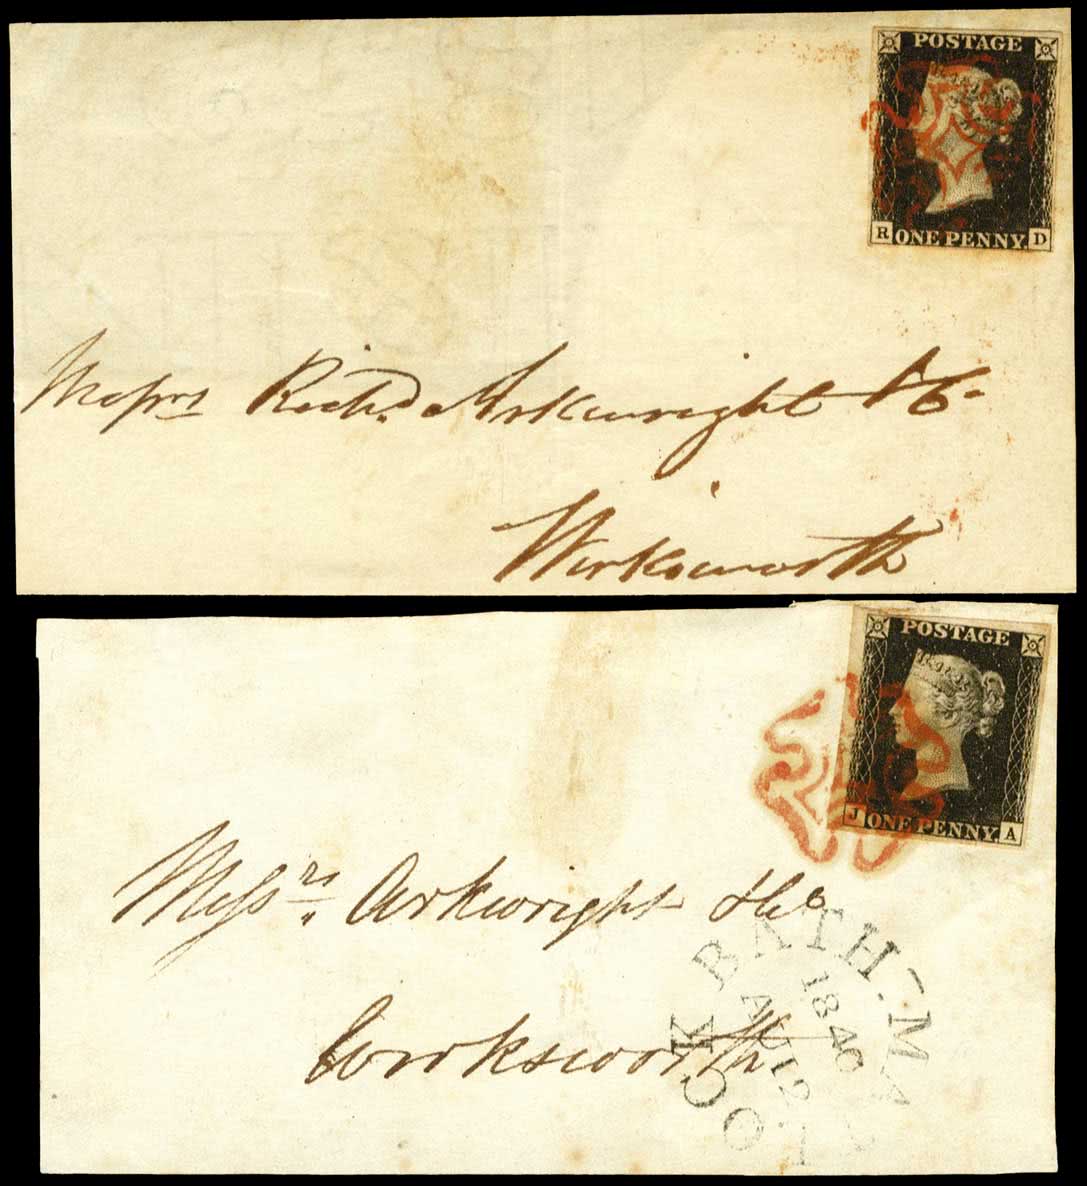 POSTAGE
R ONE PENNY. D
Messrs Richd. Arkwright & Co.
Wirksworth
POSTAGE
J ONE PENNY. A
Messrs. Arkwright & Co
Wirksworth
MATLOCK BATH.
1840
AU 12